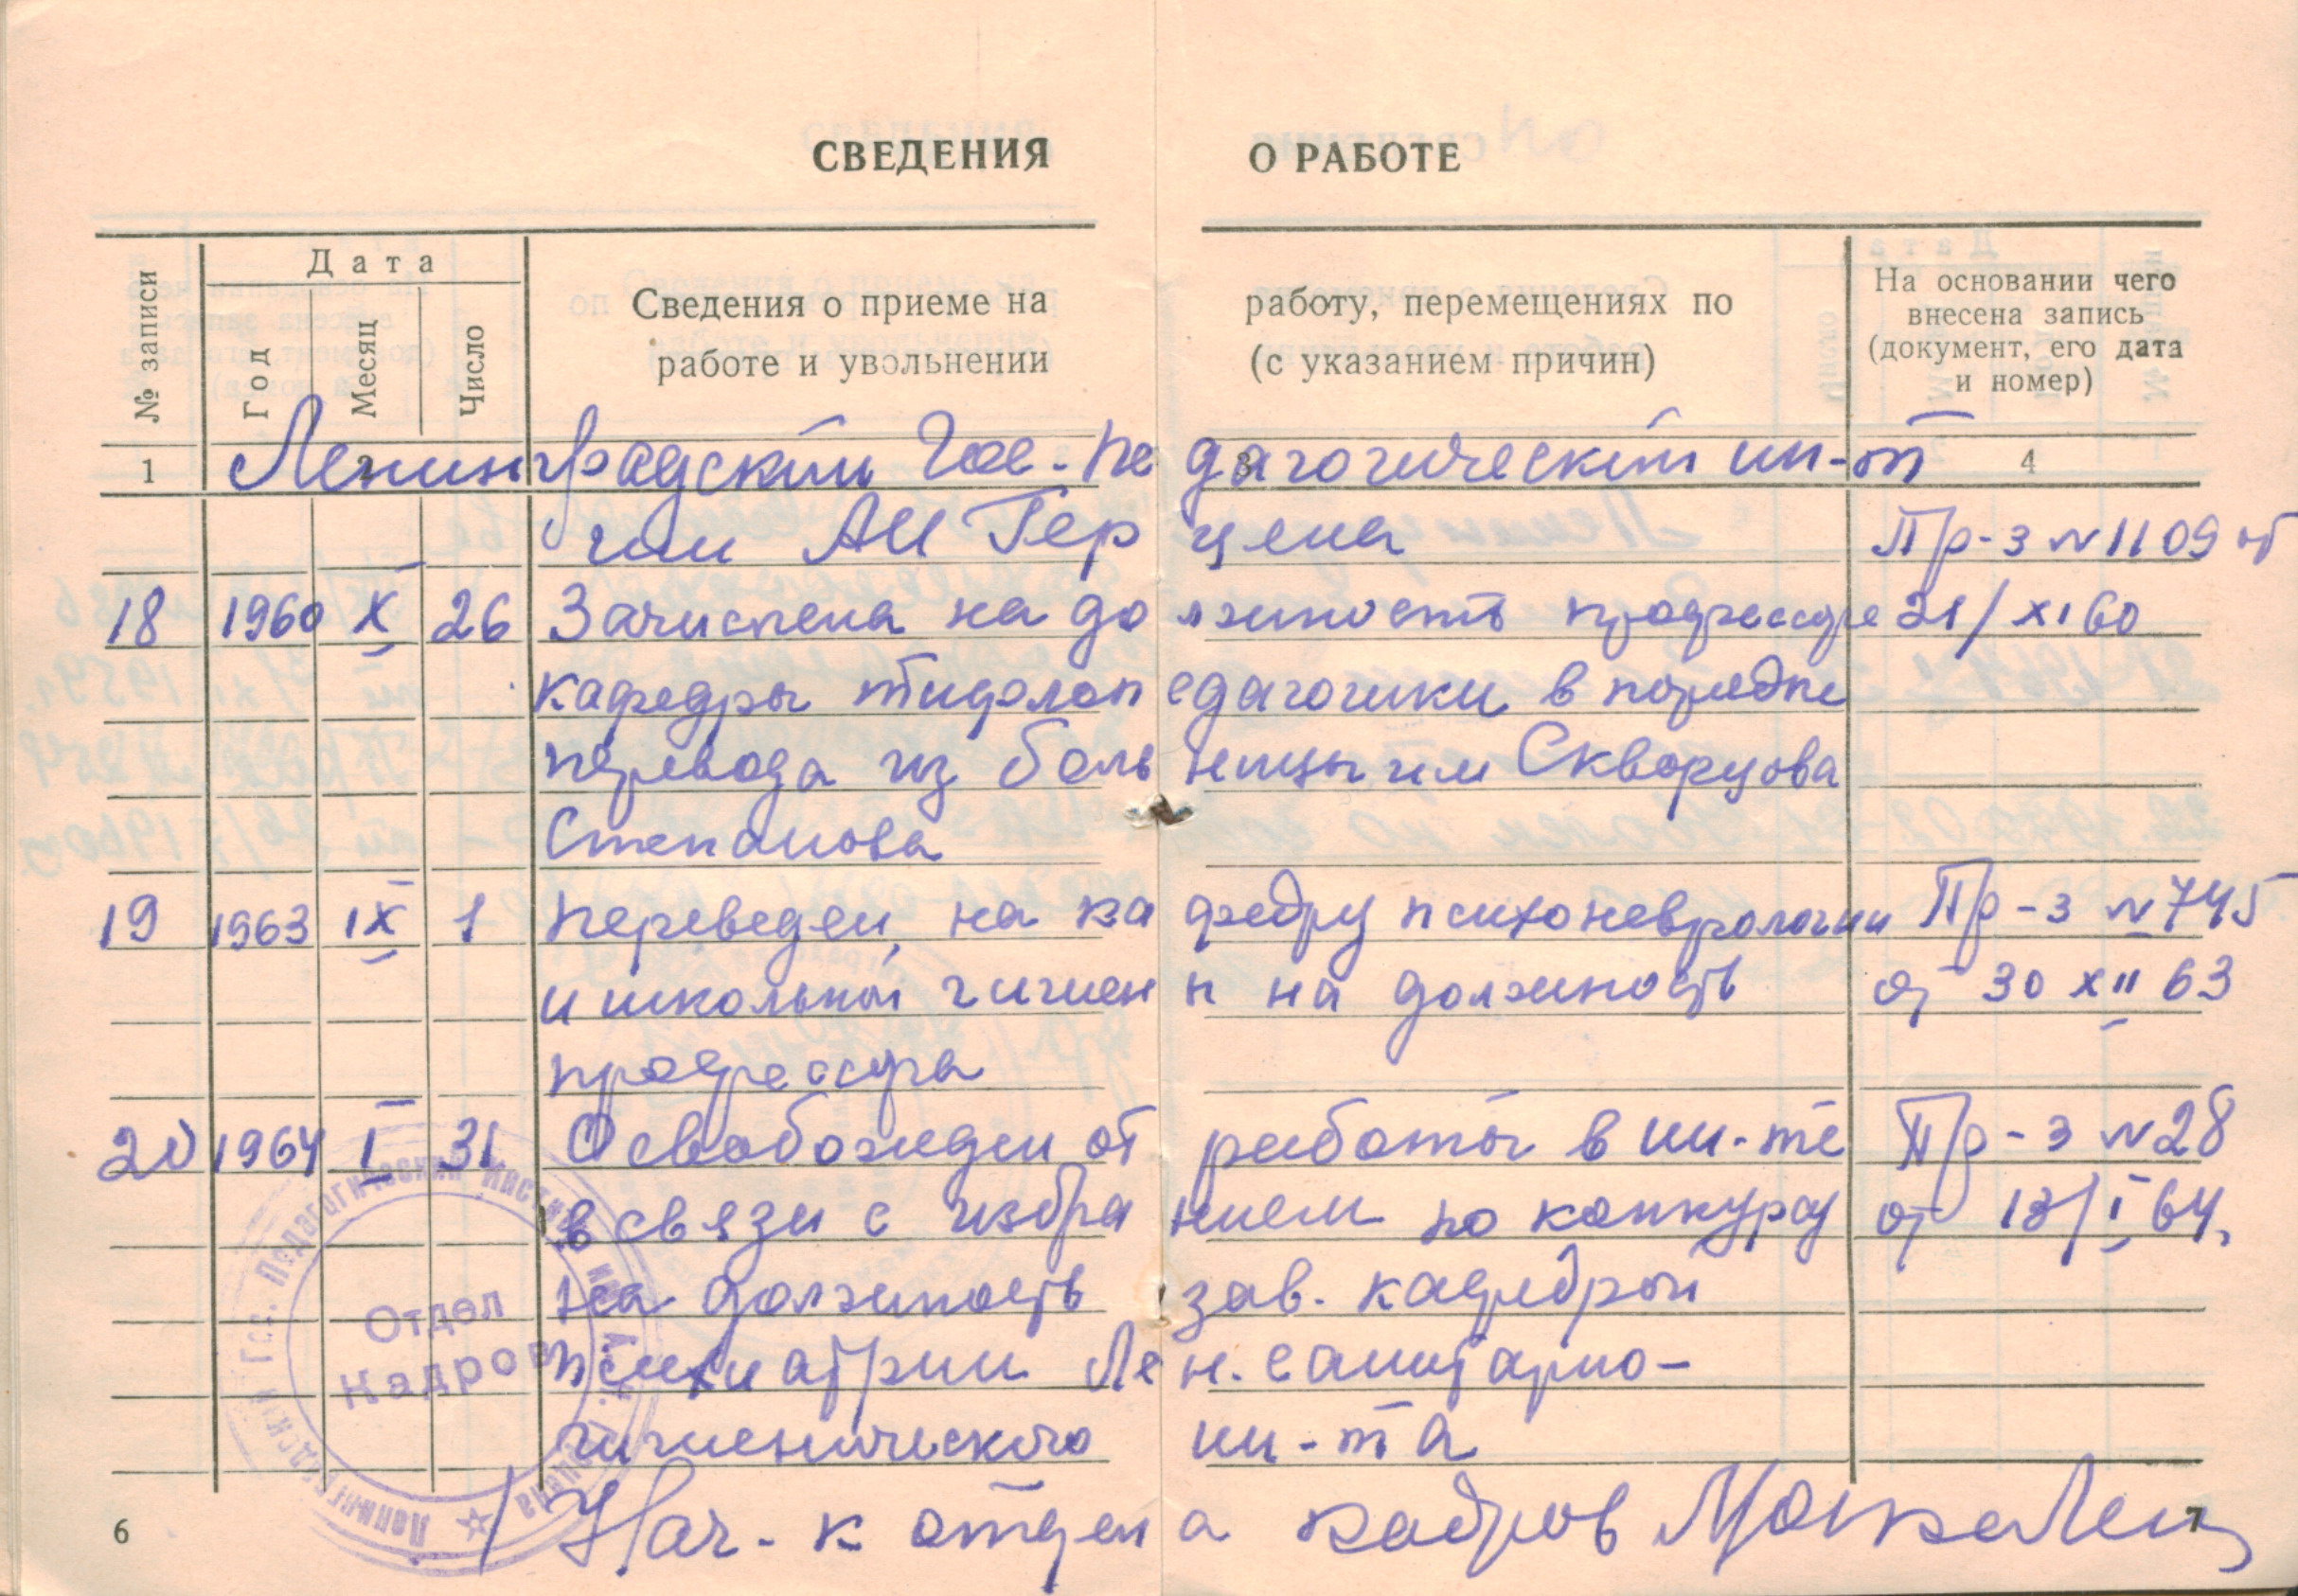 СВЕДЕНИЯ О РАБОТЕ
№ записи
Дата
Год
Месяц
Число
Сведения о приеме на работу, перемещениях по
работе и увольнении (с указанием причин)
На основании чего
внесена запись
(документ, его дата
и номер)
1 2 3 4
Ленинградский Гос-педагогический ин-т
им АИ Герцена Пр-з №1109 от
18 1960 X 26 Зачислена на должность профессора 21/XI 60
кафедры тифлопедагогики в порядке
перевода из больницы им Скворцова
Степанова
19 1963 IX 1 Переведен на кафедру психоневрологии Пр-з №745
и школьной гигиен н на должность от 30 XII 63
профессора
20 1964 I 31 Освобожден от работы в ин-те Пр-з №28
в связи с избранием по конкурсу от 13/I 64.
на должность зав. кафедрой
психиатрии Лен. санитарно-
гигиенического ин-та
Нач-к отдела кадров
Ленинградский Гос. Педагогический Институт
Герцена
Отдел
Кадров
6 7